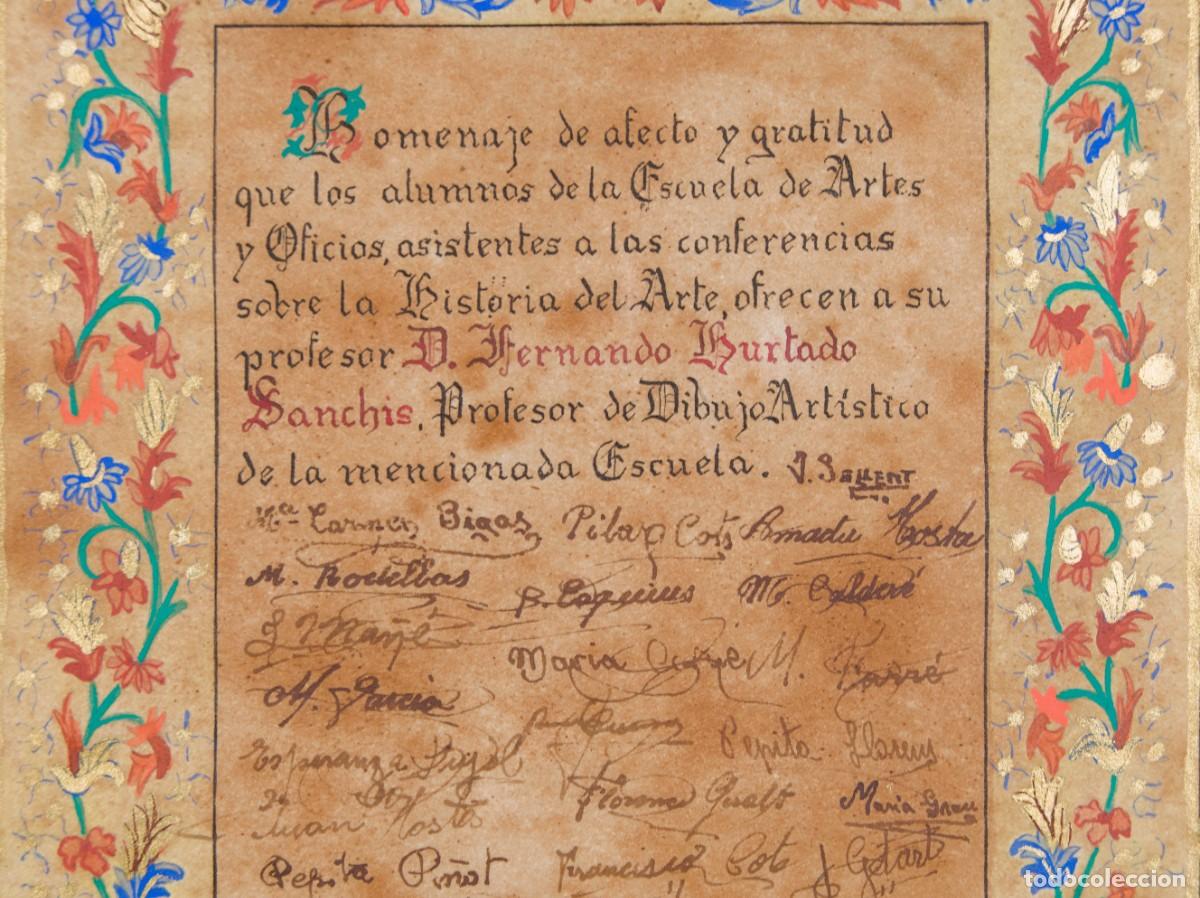 Homenaje de afecto y gratitud
que los alumnos de la Escuela de Artes
y Oficios, asistentes a las conferencias
sobre la Historia del Arte, ofrecen a su
profesor D. Fernando Hurtado
Sanchis, Profesor de Dibujo Artístico
de la mencionada Escuela. J. Sellent
Mª Carmen Bigas Pilar Cots Amadeu Costa
M. Rodellas M. Calderé
Mañé
Maria M. Farré
M. Garcia
Esperanza Pepita Llorens
Florenci Giralt Maria Grau
Juan
Pepita Piñot Francisco Cot J. Gitart
todocoleccion